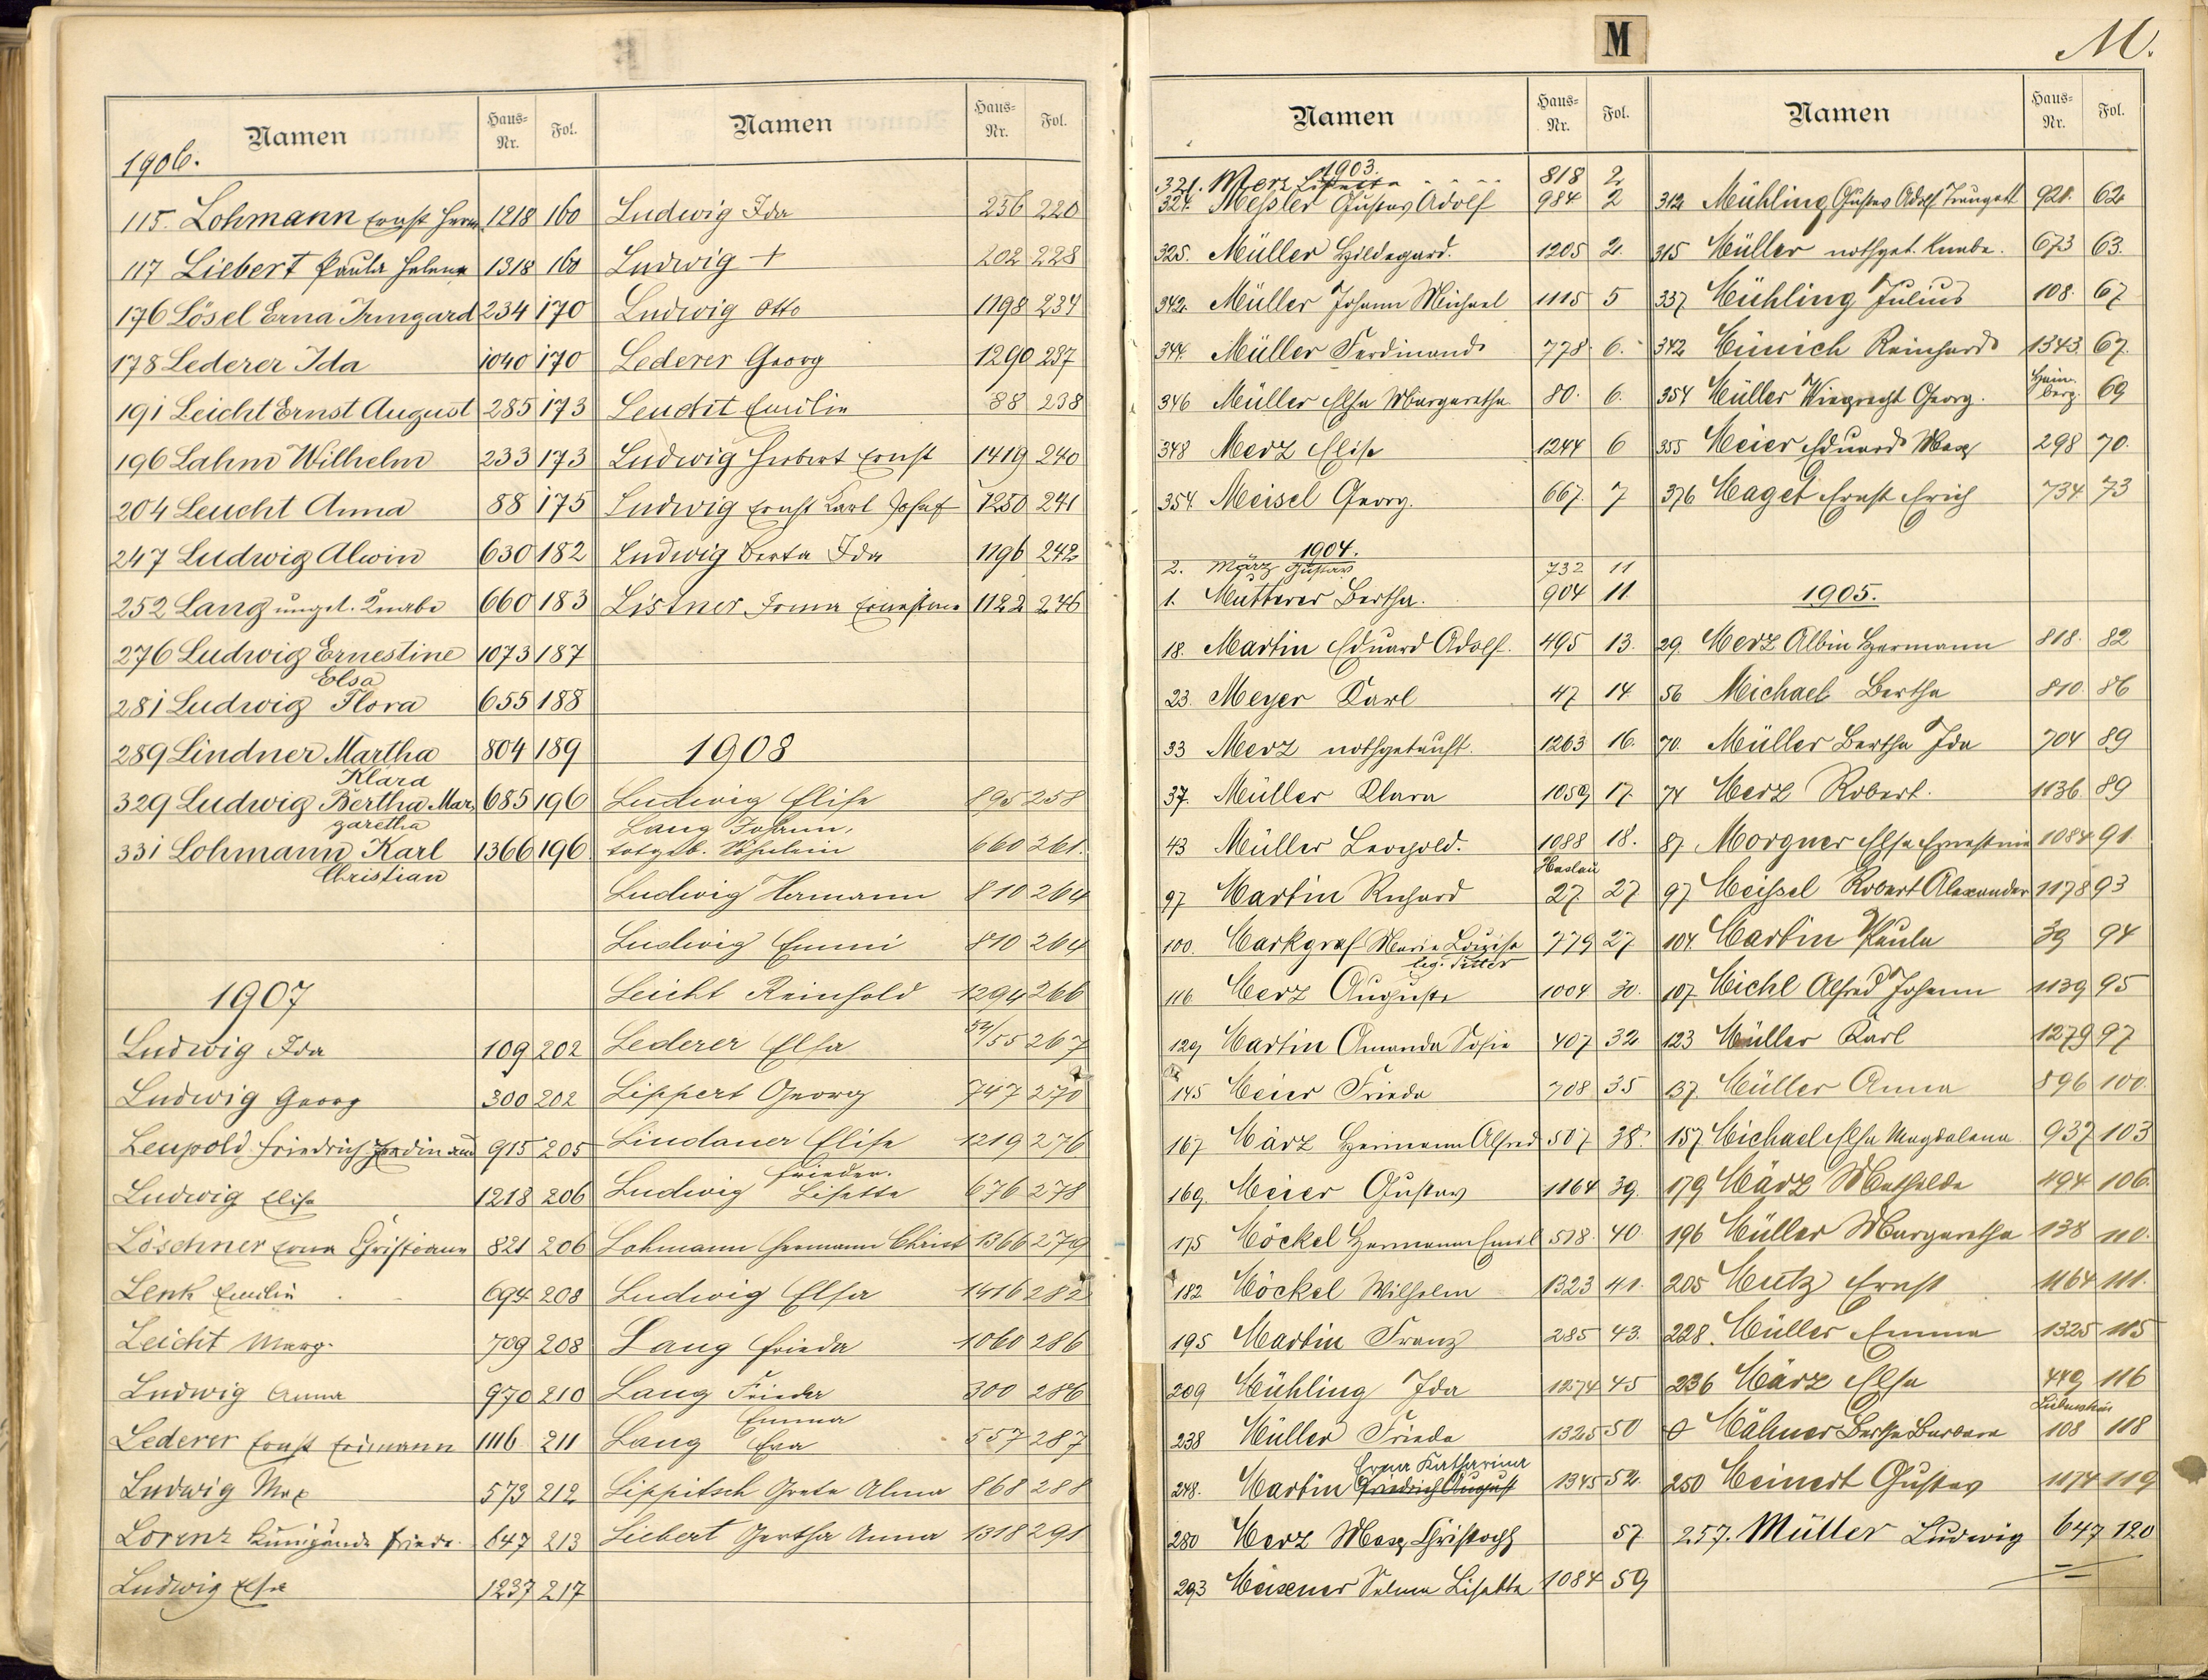 Namen Haus-Nr. Fol.
1906.
115. Lohmann Ernst Herm. 1218 160
117 Liebert Paula Helene 1318 160
176 Lösel Erna Irmgard 234 170
178 Lederer Ida 1040 170
191 Leicht Ernst August 285 173
196 Lahm Wilhelm 233 173
204 Leucht Anna 88 175
247 Ludwig Alwin 630 182
252 Lang unget. Knabe 660 183
276 Ludwig Ernestine 1073 187
Elsa
281 Ludwig Flora 655 188
289 Lindner Martha 804 189
Klara
329 Ludwig Bertha Mar- 685 196
garetha
331 Lohmann Karl 1366 196
Christian
1907
Ludwig Ida 109 202
Ludwig Georg 300 202
Leupold Friedrich Ferdinand 915 205
Ludwig Elise 1218 206
Löschner Erna Christiane 821 206
Lenk Emilie 694 208
Leicht Marg. 709 208
Ludwig Anna 970 210
Lederer Ernst Erimann 1116 211
Ludwig Max 573 212
Lorenz Kunigunde Friede. 647 213
Ludwig Elsa 1237 217
Namen Haus-Nr. Fol.
Ludwig Ida 236 220
Ludwig + 202 228
Ludwig Otto 1198 234
Lederer Georg 1290 237
Leucht Emilie 88 238
Ludwig Herbert Ernst 1419 240
Ludwig Ernst Karl Josef 1250 241
Ludwig Berta Ida 1196 242
Listner Irma Ernestine 1122 246
1908
Ludwig Elise 895 258
Lang Johann,
totgeb. Söhnlein 660 261.
Ludwig Hermann 810 264
Ludwig Emmi 810 264
Leicht Reinhold 1294 266
Lederer Elsa 54/55 267
Lippert Georg 747 270
Lindauer Elise 1219 276
Frieder.
Ludwig Lisette 676 278
Lohmann Hermann Christ 1366 279
Ludwig Elsa 1416 282
Lang Frieda 1060 286
Lang Frieda 300 286
Emma
Lang Eva 557 287
Lippitsch Grete Alma 868 288
Liebert Gertha Anna 1318 291
M
M.
Namen Haus-Nr. Fol.
1903.
321. Merz Lisette 818 2
324. Messler Gustav Adolf 984 2
325. Müller Hildegard. 1205 2.
342. Müller Johann Michael 1115 5
344. Müller Ferdinand 778. 6.
346 Müller Elsa Margaretha 80. 6.
348 Merz Elise 1244 6
354. Meisel Georg. 667. 7
1904.
2. März Gustav 732 11
1. Mutterer Bertha. 904 11.
18. Martin Eduard Adolf. 495 13.
23. Meyer Karl 47 14.
33 Merz nothgetauft. 1263 16.
37. Müller Klara 1059 17.
43 Müller Leopold. 1088 18.
Haslau
97 Martin Richard 27. 27
100. Markgraf Marie Louise 779 27
leg. Ritter
116 Merz Auguste 1004 30.
129 Martin Amanda Sofie 407 32
145 Meier Frieda 708 35
167 März Hermann Alfred 507 38.
169. Meier Gustav 1164 39.
175 Möckel Hermann Emil 528. 40.
182 Möckel Wilhelm 1323 41.
195 Martin Franz 285 43.
209 Mühling Ida 1274 45
238 Müller Frieda 1325 50
Erna Katharina
248. Martin Friedrich August 1345 52.
280 Merz Max Christoph 57.
293 Meixner Selma Lisette 1084 59
Namen Haus-Nr. Fol.
312 Mühling Gustav Adolf Traugott 928. 62
315 Müller nothget. Knabe. 673 63.
337. Mühling Julius 108. 67
342 Münich Reinhard 1343. 67.
Haim.
354 Müller Wieprecht Georg. berg. 69
355 Meier Eduard Max 298 70.
376 Maget Ernst Erich 734 73
1905.
29. Merz Albin Hermann 818. 82
56 Michael Bertha 810. 86
70. Müller Bertha Ida 704 89
74 Merz Robert. 1136. 89
87. Morgner Elsa Ernestine 1084 91
97. Meissel Robert Alexander 1178 93
104. Martin Paula 39 94
107. Michl Alfred Johann 1139 95
123 Müller Karl 1279 97
137. Müller Anna 896 100.
157 Michael Elsa Magdalena 937 103
179 März Mathilde 494 106.
196 Müller Margaretha 138 110.
205 Mutz Ernst 1164 111.
228. Müller Emma 1325 115
236 März Elsa 449 116
0 Mähner Bertha Barbara 108 118
250 Meinert Gustav 1074 119
257. Müller Ludwig 647 120